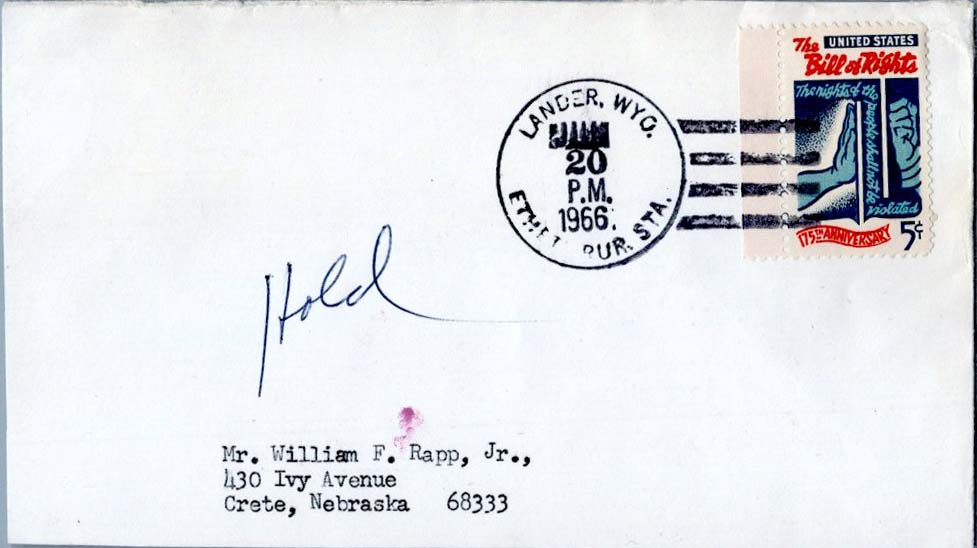 UNITED STATES
The Bill of Rights
The rights of the people shall not be violated
175TH ANNIVERSARY
5¢
LANDER, WYO.
20
P.M.
1966
PUR. STA.
Hold
Mr. William F. Rapp, Jr.,
430 Ivy Avenue
Crete, Nebraska 68333